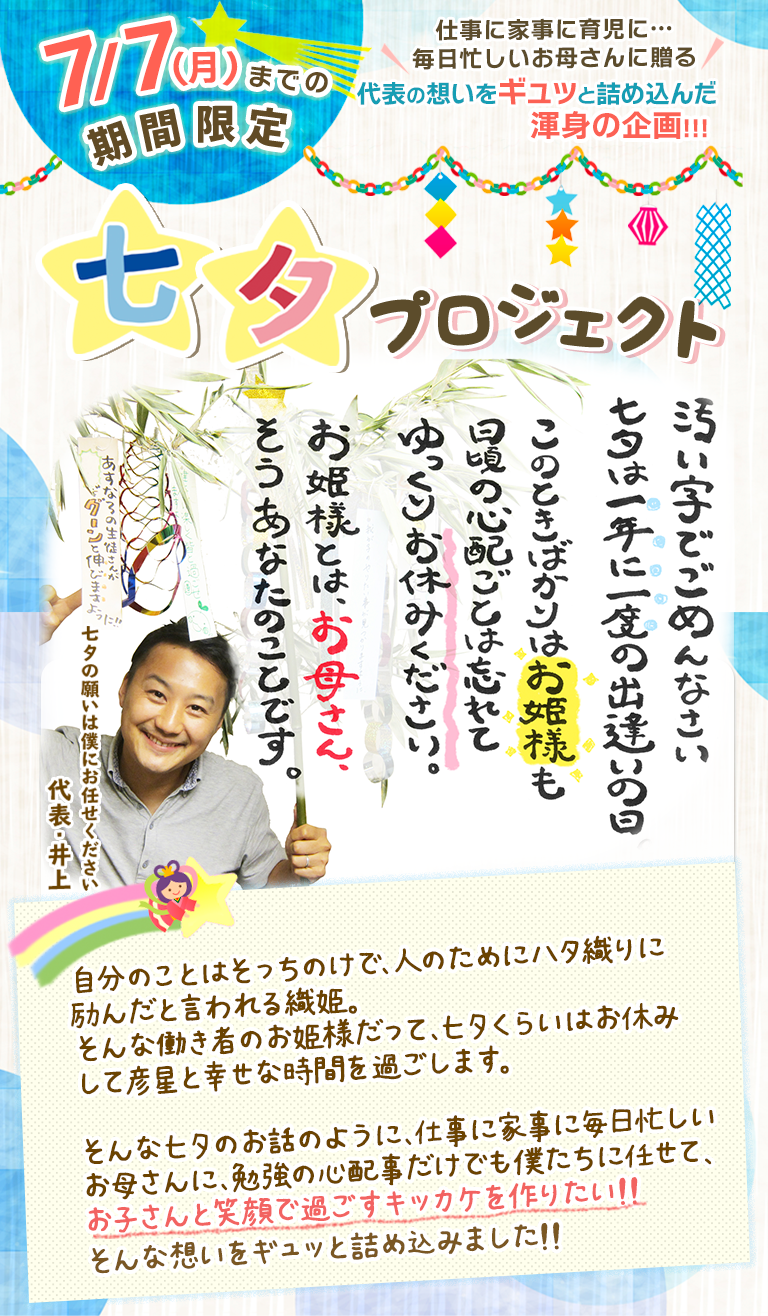 7/7(月)までの
期間限定
仕事に家事に育児に…
毎日忙しいお母さんに贈る
代表の想いをギュッと詰め込んだ
渾身の企画!!!
七夕プロジェクト
汚い字でごめんなさい
七夕は一年に一度の出逢いの日
このときばかりはお姫様も
日頃の心配ごとは忘れて
ゆっくりお休みください。
お姫様とは、お母さん、
そうあなたのことです。
あすなろの生徒さんが
グーンと伸びます
ように!!
七夕の願いは僕にお任せください
代表・井上
自分のことはそっちのけで、人のためにハタ織りに
励んだと言われる織姫。
そんな働き者のお姫様だって、七夕くらいはお休み
して彦星と幸せな時間を過ごします。
そんな七夕のお話のように、仕事に家事に毎日忙しい
お母さんに、勉強の心配事だけでも僕たちに任せて、
お子さんと笑顔で過ごすキッカケを作りたい!!
そんな想いをギュッと詰め込みました!!